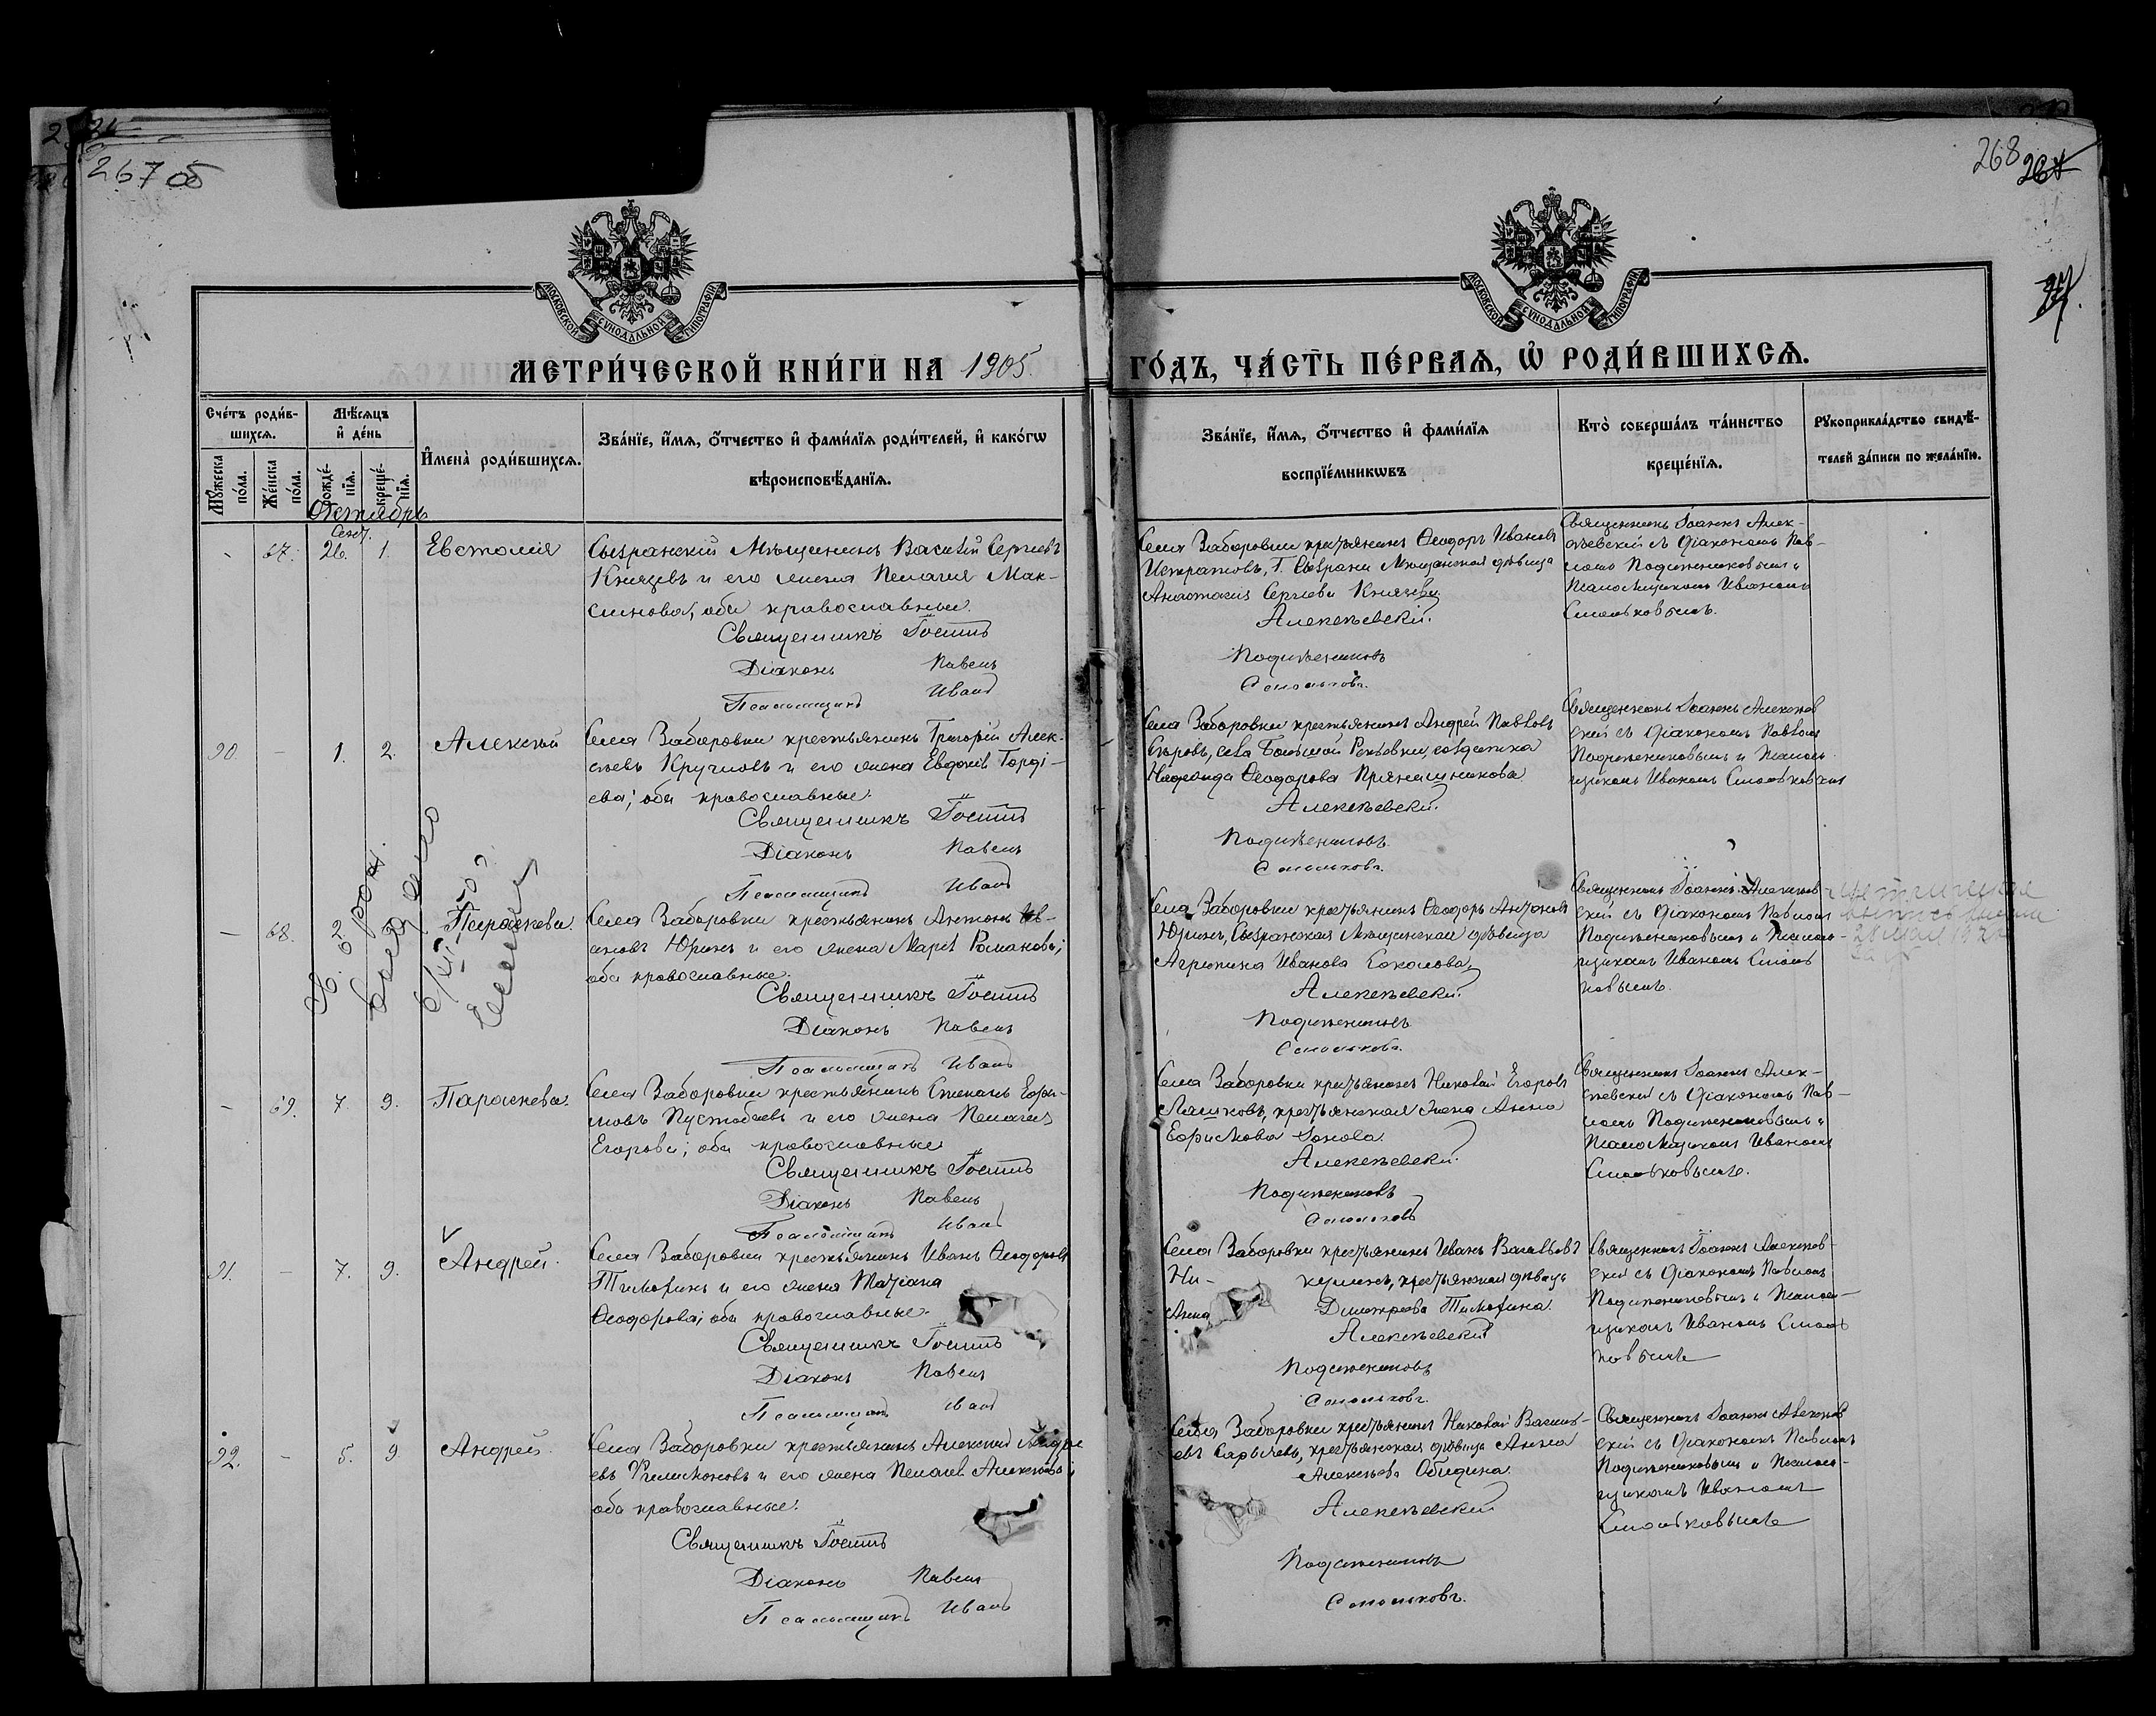 267 об
268
МЕТРИ́ЧЕСКОЙ КНИ́ГИ НА 1905 ГО́ДЪ, ЧА́СТЬ ПЕ́РВАЯ, Ѡ҆ РОДИ́ВШИХСЯ.
МОСКОВСКОЙ СѴНОДАЛЬНОЙ ТИПОГРАФІИ
МОСКОВСКОЙ СѴНОДАЛЬНОЙ ТИПОГРАФІИ
Сче́тъ роди́в-
шихся.
Мѣ́сяцъ
и҆ де́нь
Мꙋ́жеска по́ла.
Же́нска по́ла.
рожде́-
нїя.
креще́-
нїя.
И҆мена̀ роди́вшихся.
Зва́нїе, и҆́мя, ѻ҆́тчество и҆ фами́лїя роди́телей, и҆ како́гѡ
вѣроисповѣ́данїя.
Зва́нїе, и҆́мя, ѻ҆́тчество и҆ фами́лїя
воспрїе́мникѡвъ
Кто̀ соверша́лъ та́инство
креще́нїя.
Рꙋкоприкла́дство свидѣ́-
телей за́писи по жела́нїю.
Октябрь
Сент.
67. 26. 1. Евстолія
Сызранскій Мѣщанинъ Василій Сергіевъ
Князевъ и его жена Пелагія Мак-
симова, оба православные.
Священникъ Іоаннъ
Діаконъ Павелъ
Псаломщикъ Иванъ
Села Заборовки крестьянинъ Ѳеодоръ Ивановъ
Истратовъ, Г. Сызрани Мѣщанская дѣвица
Анастасія Сергіева Князева
Алексѣевскій.
Подиженниковъ
Смольковъ.
Священникъ Іоаннъ Алек-
сѣевскій съ Діакономъ Пав-
ломъ Подиженниковымъ и
Псаломщикомъ Иваномъ
Смольковымъ.
90. - 1. 2. Алексѣй
Села Заборовки крестьянинъ Григорій Алек-
сѣевъ Кручновъ и его жена Евдокія Горді-
ева; оба православные.
Священникъ Іоаннъ
Діаконъ Павелъ
Псаломщикъ Иванъ
Села Заборовки крестьянинъ Андрей Павловъ
Егоровъ, села Большой Репьевки, солдатка
Надежда Ѳеодорова Прянишникова
Алексѣевскій.
Подиженниковъ.
Смольковъ.
Священникъ Іоаннъ Алексѣев
скій съ Діакономъ Павломъ
Подиженниковымъ и Псалом-
щикомъ Иваномъ Смольковымъ
- 68. 2. Параскева.
Села Заборовки крестьянинъ Антонъ Ив-
ановъ Юринъ и его жена Марія Романова;
оба православные.
Священникъ Іоаннъ
Діаконъ Павелъ
Псаломщикъ Иванъ
Села Заборовки крестьянинъ Ѳеодоръ Антоновъ
Юринъ, Сызранская Мѣщанская дѣвица
Агрипина Иванова Соколова
Алексѣевскій.
Подиженниковъ
Смольковъ.
Священникъ Іоаннъ Алексѣев
скій съ Діакономъ Павломъ
Подиженниковымъ и Псалом-
щикомъ Иваномъ Смоль
ковымъ.
- 69. 7. 9. Параскева.
Села Заборовки крестьянинъ Степанъ Ефи-
мовъ Пустобаевъ и его жена Пелагія
Егорова; оба православные
Священникъ Іоаннъ
Діаконъ Павелъ
Псаломщикъ Иванъ
Села Заборовки крестьянинъ Николай Егоровъ
Ляшковъ, крестьянская жена Анна
Ефимова Зонова.
Алексѣевскій.
Подиженниковъ
Смольковъ
Священникъ Іоаннъ Алек-
сѣевскій съ Діакономъ Пав-
ломъ Подиженниковымъ и
Псаломщикомъ Иваномъ
Смольковымъ.
91. - 7. 9. Андрей.
Села Заборовки крестьянинъ Иванъ Ѳеодоровъ
Тимофинъ и его жена Татіана
Ѳеодорова; оба православные.
Священникъ Іоаннъ
Діаконъ Павелъ
Псаломщикъ Иванъ
Села Заборовки крестьянинъ Иванъ Васильевъ
Ни- кулинъ, крестьянская дѣвица
Анна Дмитріева Тимофина.
Алексѣевскій
Подиженниковъ
Смольковъ.
Священникъ Іоаннъ Алексѣев-
скій съ Діакономъ Павломъ
Подиженниковымъ и Псалом-
щикомъ Иваномъ Смоль
ковымъ
92. - 5. 9. Андрей.
Села Заборовки крестьянинъ Алексѣй Андре
евъ Филимоновъ и его жена Пелагія Алексѣева;
оба православные.
Священникъ Іоаннъ
Діаконъ Павелъ
Псаломщикъ Иванъ
Села Заборовки крестьянинъ Николай Василь-
евъ Сарычевъ, крестьянская дѣвица Анна
Алексѣева Обидина.
Алексѣевскій
Подиженниковъ
Смольковъ.
Священникъ Іоаннъ Алексѣев
скій съ Діакономъ Павломъ
Подиженниковымъ и Псалом-
щикомъ Иваномъ
Смольковымъ